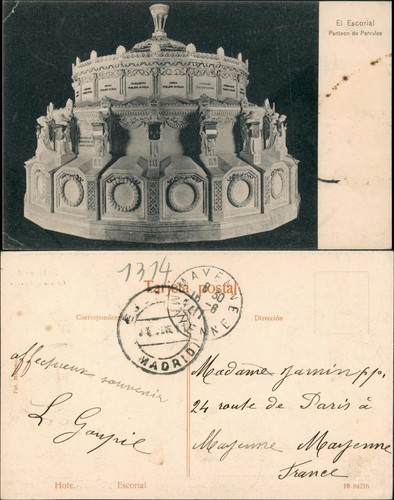 El Escorial
Panteon de Parvulos
1314
Tarjeta postal
Correspondencia
Dirección
MAYENNE
8 30
MAYENNE
MADRID
affectueux souvenir
L Goupil
Madame Jamin pp.
24 route de Paris à
Mayenne Mayenne
France
Hote. Escorial